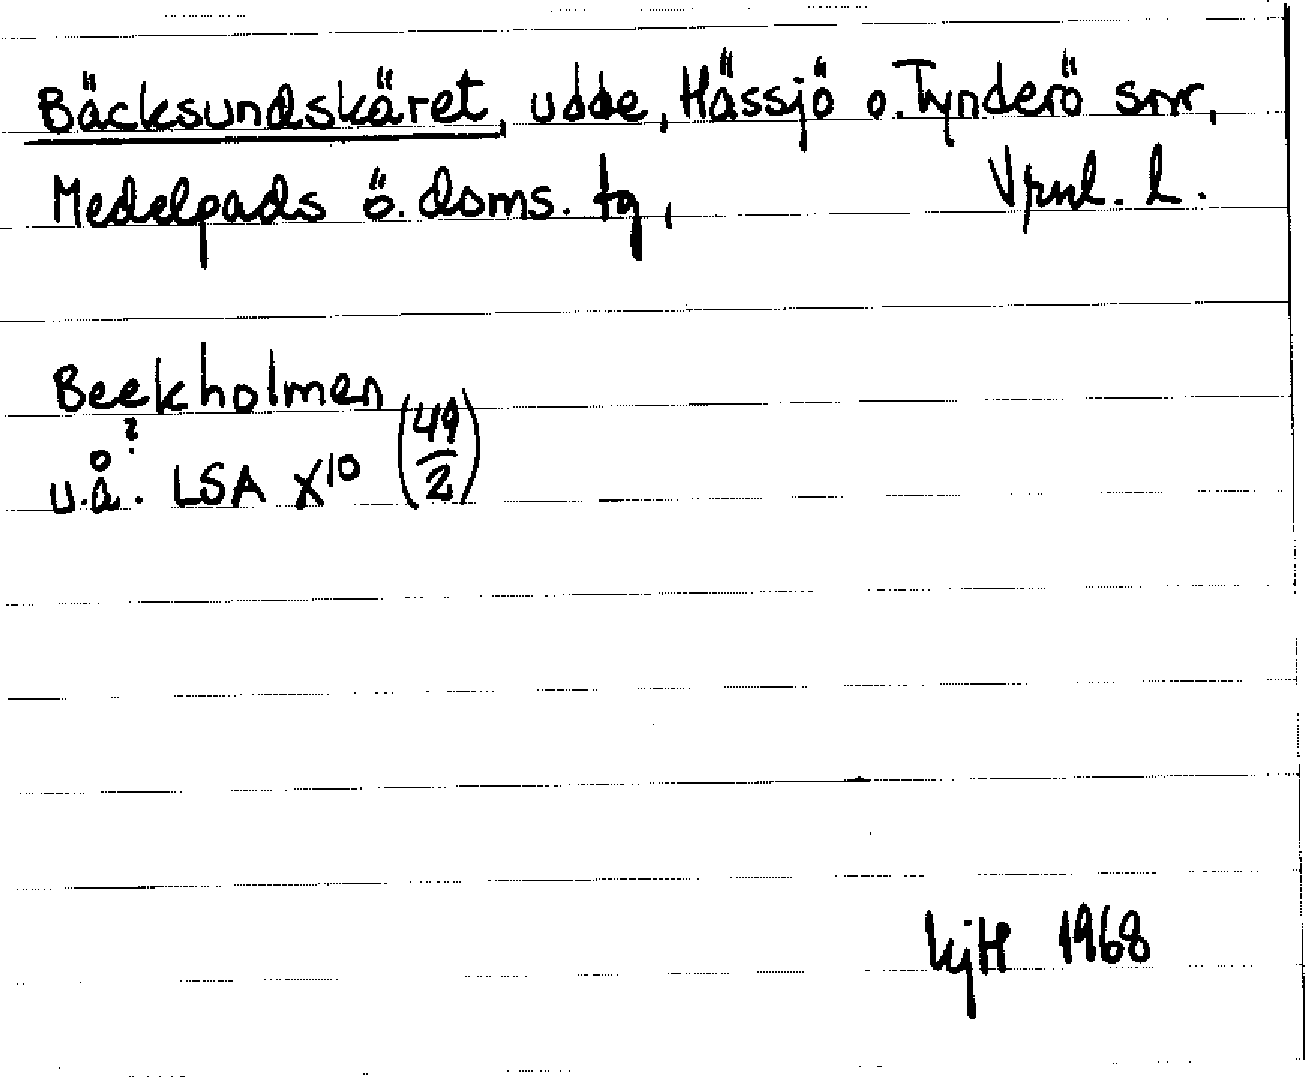 Bäcksundskäret, udde, Hässjö o. Tynderö snr,
Medelpads ö. doms. tg, Vrnl. l.
Beekholmen
?
u.å. LSA X10 (49/2)
KjH 1968